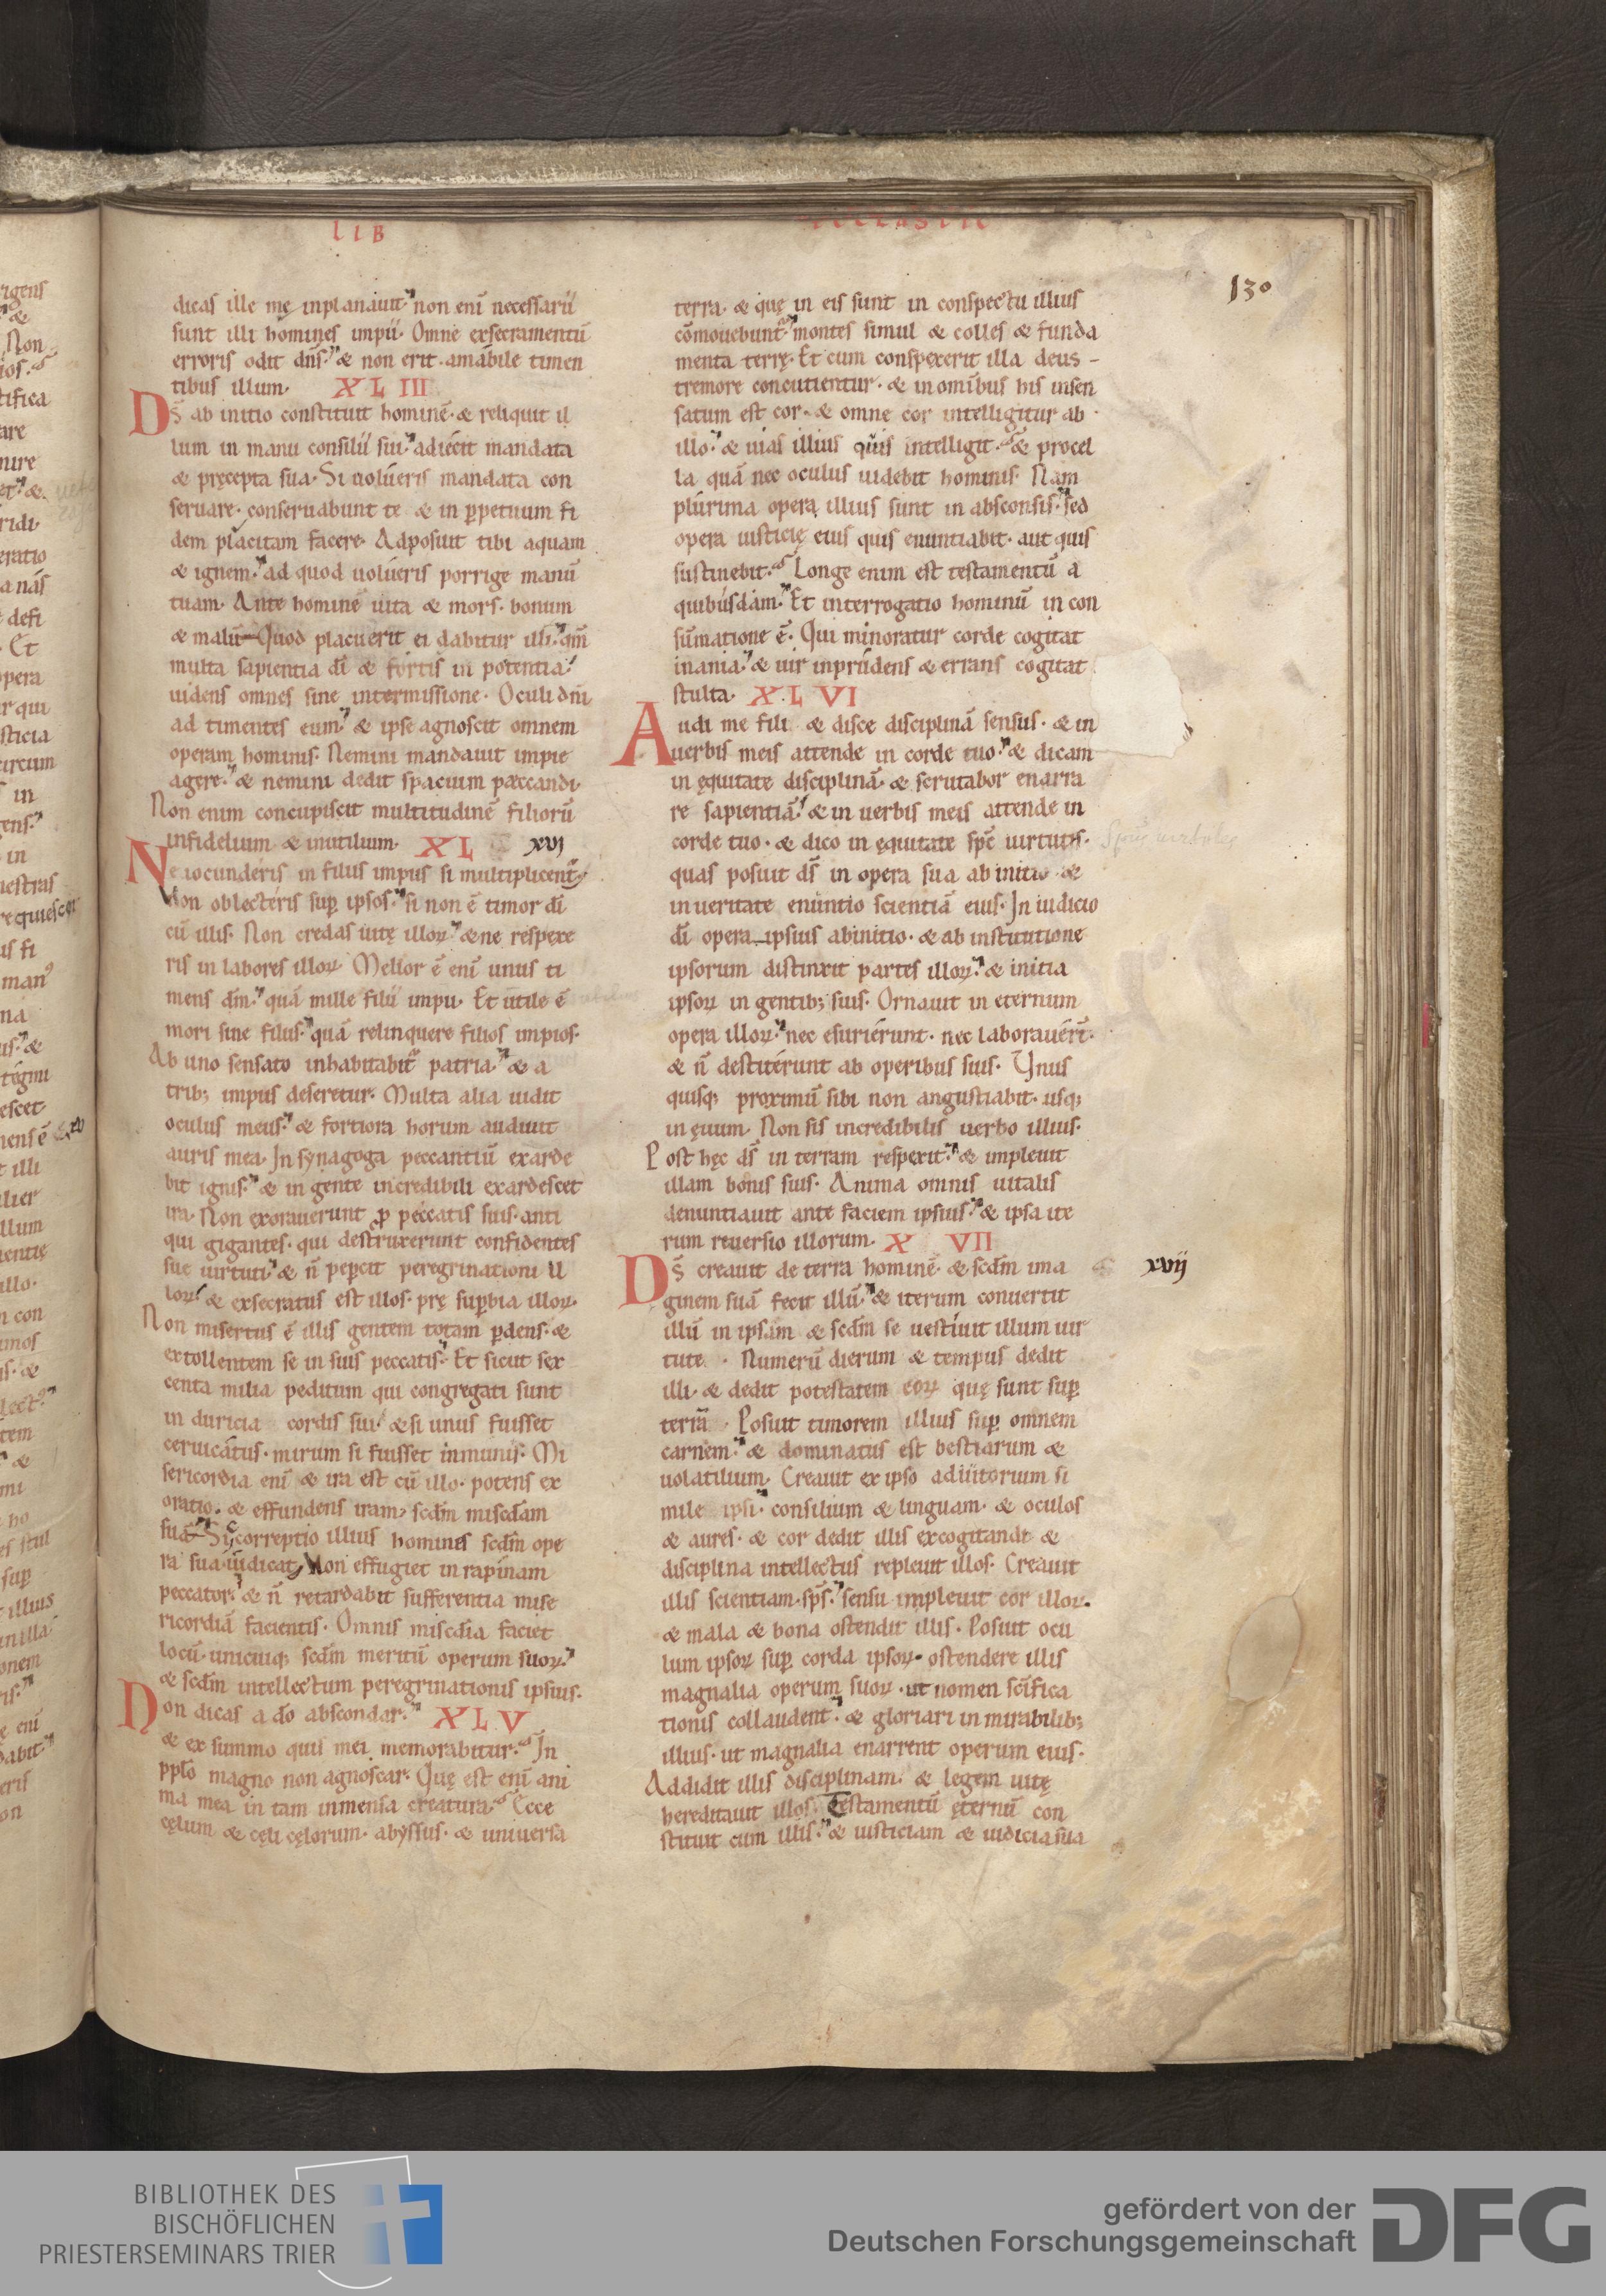 LIB
130
dicas ille me inplanauit. non eni̅ necessarii
sunt illi homines impii. Omne exsecramentu̅
erroris odit dn̅s. & non erit amabile timen
tibus illum. XLIII
Ds̅ ab initio constituit homine̅. & reliquit il
lum in manu consilii sui. adiecit mandata
& pręcepta sua. Si uolueris mandata con
seruare. conseruabunt te & in ꝑpetuum fi
dem placitam facere. Adposuit tibi aquam
& ignem. ad quod uolueris porrige manu̅
tuam. Ante homine̅ uita & mors. bonum
& malu̅. Quod placuerit ei dabitur illi. qm̅
multa sapientia di̅ & fortis in potentia.
uidens omnes sine intermissione. Oculi dn̅i
ad timentes eum. & ipse agnoscit omnem
operam hominis. Nemini mandauit impie
agere. & nemini dedit spacium pæccandi.
Non enim concupiscit multitudine̅ filioru̅
infidelium & inutilium. XL xvj
Ne iocunderis in filiis impiis si multiplicent̅.
Non oblecteris suꝑ ipsos. si non e̅ timor di̅
cu̅ illis. Non credas uitę illoꝝ. & ne respexe
ris in labores illoꝝ. Melior e̅ eni̅ unus ti
mens dm̅. qua̅ mille filii impii. Et utile e̅
mori sine filiis. qua̅ relinquere filios impios.
Ab uno sensato inhabitabit̅ patria. & a
trib; impiis deseretur. Multa alia uidit
oculus meus. & fortiora horum audiuit
auris mea. In synagoga peccantiu̅ exarde
bit ignis. & in gente incredibili exardescet
ira. Non exorauerunt ꝓ peccatis suis. anti
qui gigantes. qui destruxerunt confidentes
suę uirtuti. & n̅ peꝑcit peregrinationi il
loꝝ. & exsecratus est illos. prę suꝑbia illoꝝ.
Non misertus e̅ illis gentem totam ꝑdens. &
extollentem se in suis peccatis. Et sicut sex
centa milia peditum qui congregati sunt
in duricia cordis sui. & si unus fuisset
ceruicatus. mirum si fuisset inmunis. Mi
sericordia eni̅ & ira est cu̅ illo. potens ex
oratio. & effundens iram. scd̅m miscd̅iam
sua̅. Sic correptio illius hominis scd̅m ope
ra sua iudicat. Non effugiet in rapinam
peccator. & n̅ retardabit sufferentia mise
ricordia̅ facientis. Omnis miscd̅ia faciet
locu̅ unicuiq; scd̅m meritu̅ operum suoꝝ.
& scd̅m intellectum peregrinationis ipsius.
Non dicas a do̅ abscondar. XLV
& ex summo quis mei memorabitur. In
pplo̅ magno non agnoscar. Quę est eni̅ ani
ma mea in tam inmensa creatura. Ecce
cęlum & cęli cęlorum. abyssus. & uniuersa
terra. & quę in eis sunt in conspectu illius
co̅mouebunt̅. montes simul & colles & funda
menta terrę. Et cum conspexerit illa deus
tremore concutientur. & in omi̅bus his insen
satum est cor. & omne cor intelligitur ab
illo. & uias illius quis intelligit. & procel
la qua̅ nec oculus uidebit hominis. Nam
plurima opera illius sunt in absconsis. sed
opera iusticię eius quis enuntiabit. aut quis
sustinebit. Longe enim est testamentu̅ a
quibusdam. Et interrogatio hominu̅ in con
su̅matione e̅. Qui minoratur corde cogitat
inania. & uir inprudens & errans cogitat
stulta. XLVI
Audi me fili & disce disciplina̅ sensus. & in
uerbis meis attende in corde tuo. & dicam
in ęquitate disciplina̅. & scrutabor enarra
re sapientia̅. & in uerbis meis attende in
corde tuo. & dico in ęquitate spc̅ uirtutis.
quas posuit ds̅ in opera sua ab initio &
in ueritate enuntio scientia̅ eius. In iudicio
di̅ opera ipsius ab initio. & ab institutione
ipsorum distinxit partes illoꝝ. & initia
ipsoꝝ in gentib; suis. Ornauit in eternum
opera illoꝝ. nec esurierunt. nec laborauer̅t.
& n̅ destiterunt ab operibus suis. Unus
quisq; proximu̅ sibi non angustiabit. usq;
in ęuum. Non sis incredibilis uerbo illius.
Post hęc ds̅ in terram respexit. & impleuit
illam bonis suis. Anima omnis uitalis
denuntiauit ante faciem ipsius. & ipsa ite
rum reuersio illorum. X VII
Ds̅ creauit de terra homine̅. & scd̅m ima xvij
ginem sua̅ fecit illu̅. & iterum conuertit
illu̅ in ipsam & scd̅m se uestiuit illum uir
tute. Numeru̅ dierum & tempus dedit
illi. & dedit potestatem eoꝝ quę sunt suꝑ
terra̅. Posuit timorem illius suꝑ omnem
carnem. & dominatus est bestiarum &
uolatilium. Creauit ex ipso adiutorium si
mile ipsi. consilium & linguam. & oculos
& aures. & cor dedit illis excogitandi &
disciplina intellectus repleuit illos. Creauit
illis scientiam sps̅. sensu impleuit cor illoꝝ.
& mala & bona ostendit illis. Posuit ocu
lum ipsoꝝ suꝑ corda ipsoꝝ. ostendere illis
magnalia operum suoꝝ. ut nomen sci̅fica
tionis collaudent. & gloriari in mirabilib;
illius. ut magnalia enarrent operum eius.
Addidit illis disciplinam. & legem uitę
hereditauit illos. Testamentu̅ ęternu̅ con
stituit cum illis. & iusticiam & iudicia sua
BIBLIOTHEK DES
BISCHÖFLICHEN
PRIESTERSEMINARS TRIER
gefördert von der
Deutschen Forschungsgemeinschaft
DFG